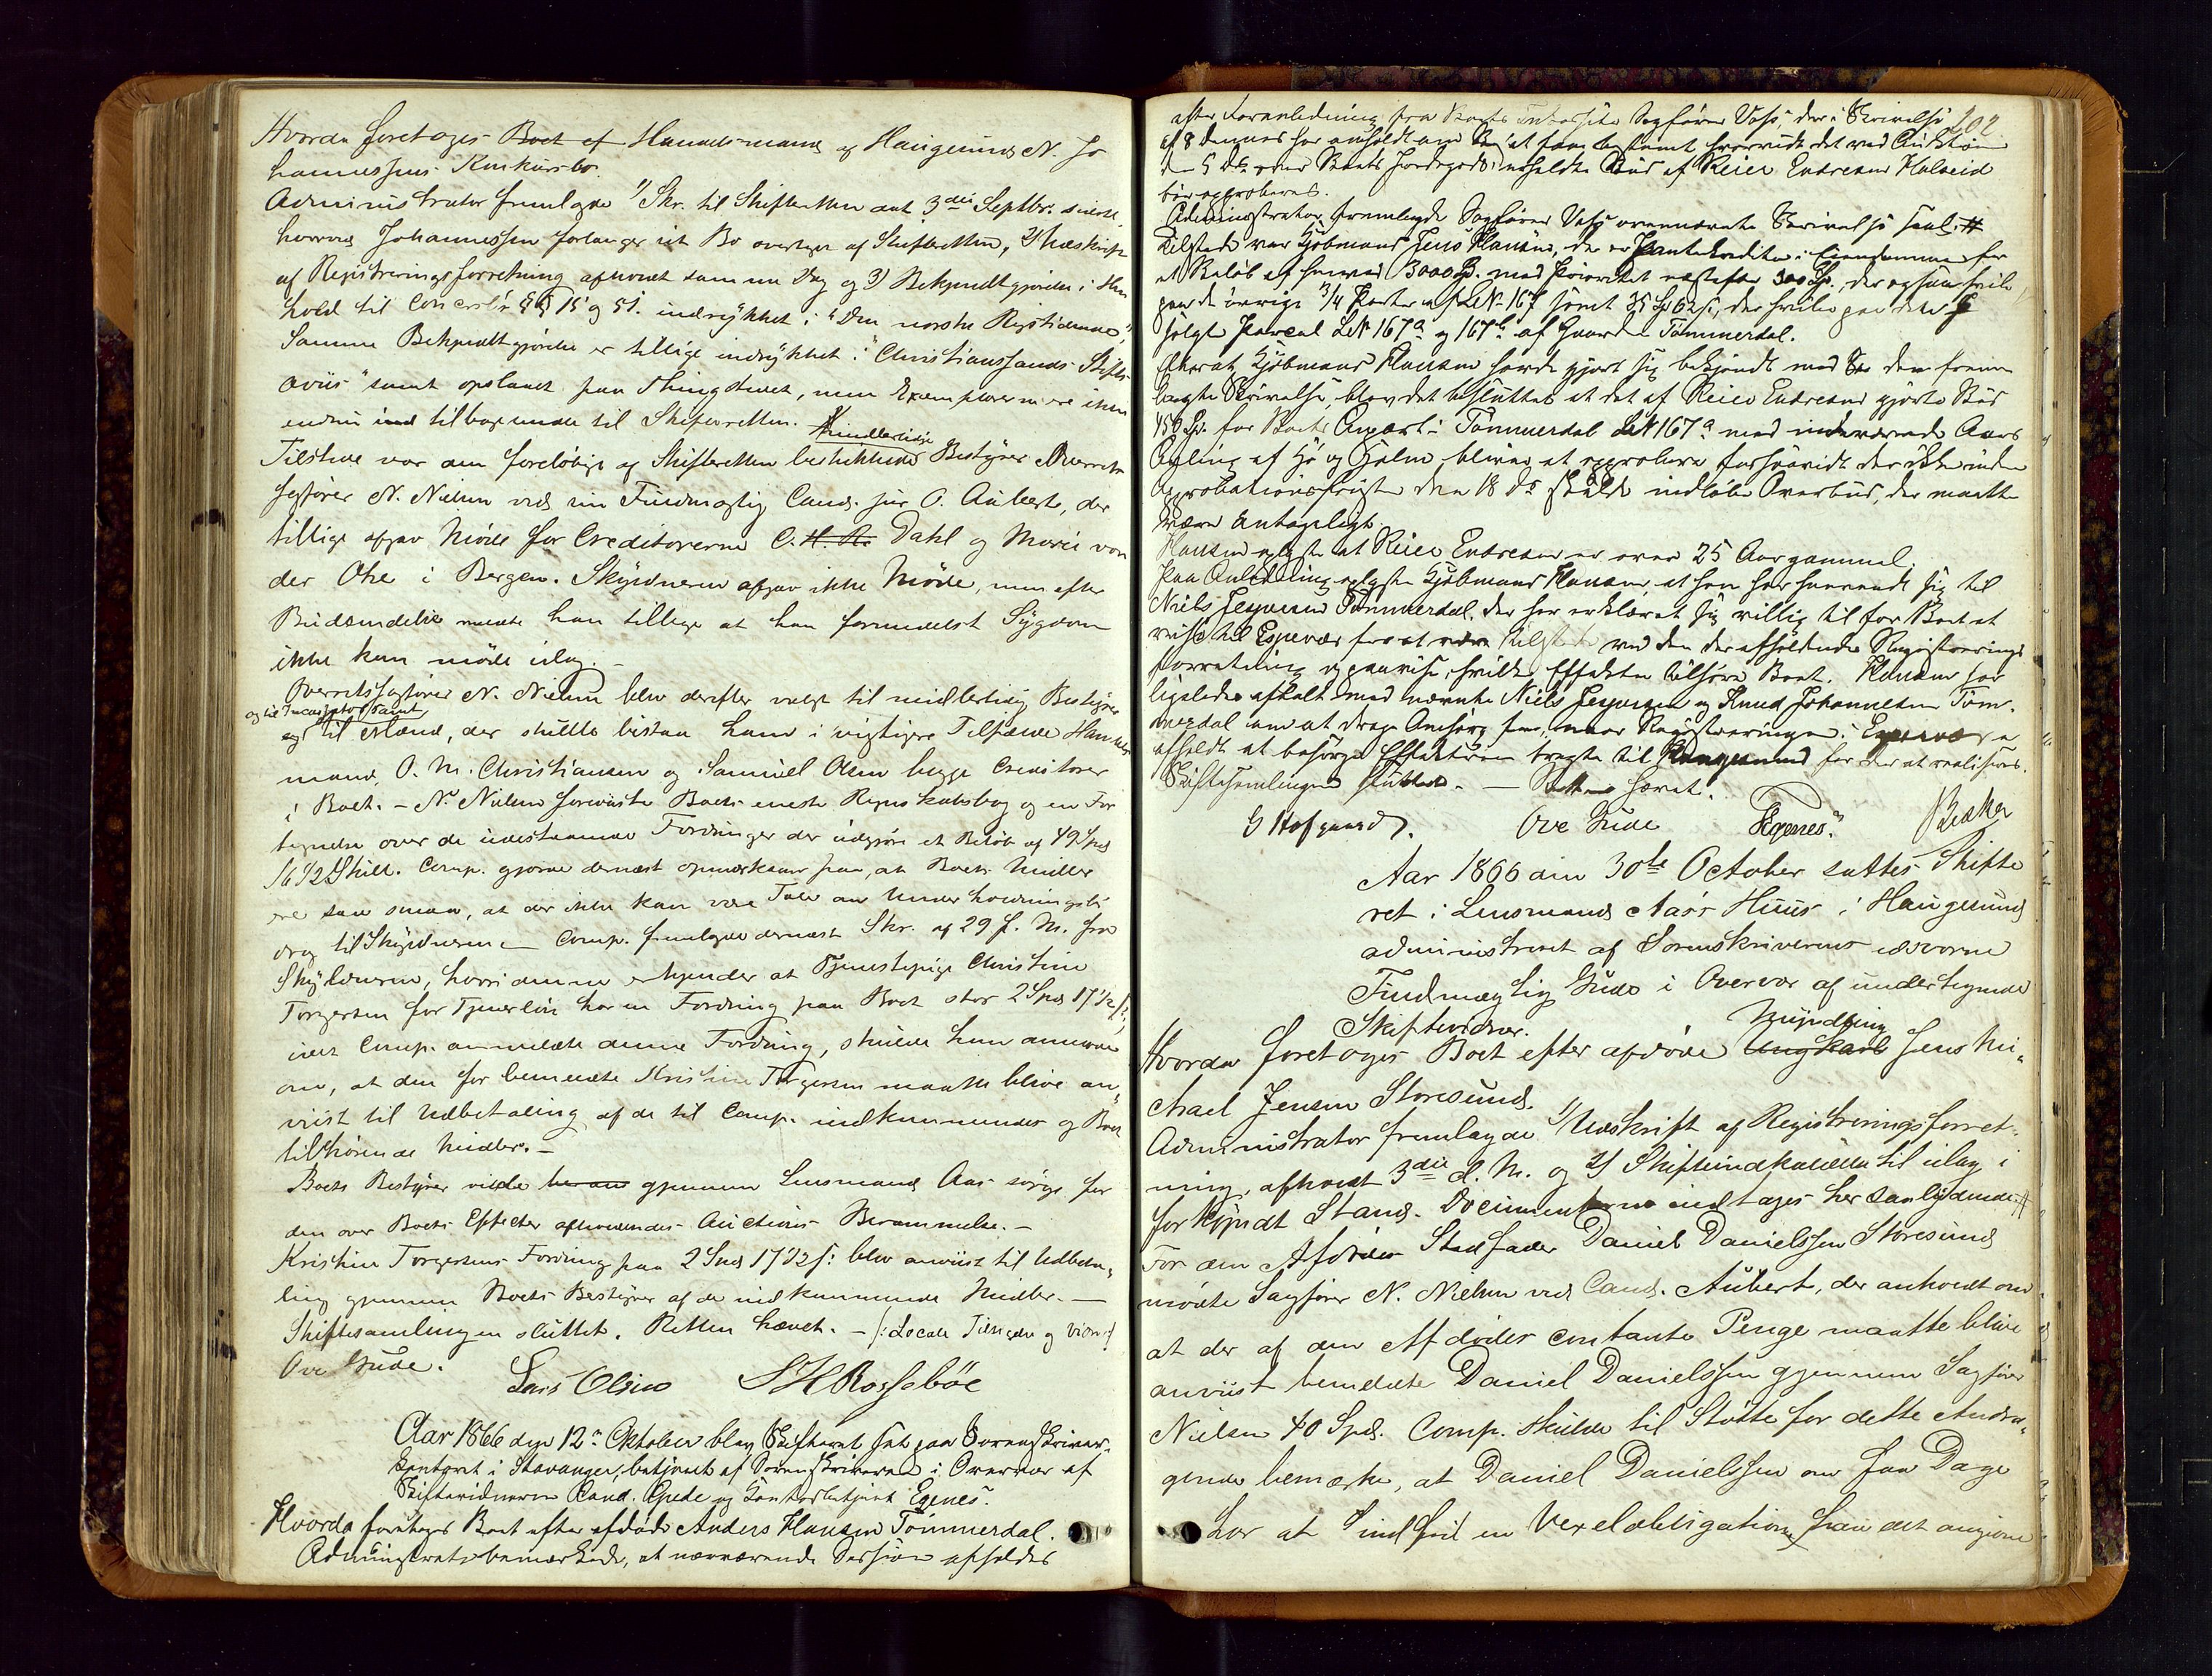 Hvorda foretoges Boet af Handelsmand af Haugesund N. Jo
hannessens Konkursbo.
Administrator fremlagde 1/ Skr. til Skifteretten dat 3die Septbr. sidste,
hvorved Johannessen forlanger sit Bo overtaget af Skifteretten, 2/ Udskrift
af Registreringsforretning afholdt samme Dag og 3) Bekjendtgjørelse i Hen
hold til Concursl's §§ 15 og 51. indrykket i "Den norske Rigstidende",
Samme Bekjendtgjørelse er tillige indrykket i "Christianssands Stifts
avis" samt opslaaet paa Thingstedet, men Exemplarerne ere ikke
endnu ind tilbagesendte til Skifteretten.
Tilstede var den foreløbige af Skifteretten beskikkede midlertidige Bestyrer Overrets
sagfører N. Nielsen ved sin Fuldmægtig Cand. jur O. Aubert, der
tillige afgav Møde for Creditorerne C. H. R. Dahl og Marie von
der Ohe i Bergen. Skyldneren afgav ikke Møde, men efter
Budsendelse meldte han tillige at han formedelst Sygdom
ikke kan møde idag. –
Overretssagfører N. Nielsen blev derefter valgt til midlertidig Bestyrer
og til Incassator samt
og til Mænd, der skulde bistaa ham i vigtigere Tilfælde Handels
mand O. M. Christiansen og Samuel Olsen begge Creditorer
i Boet. – N. Nielsen foreviste Boets eneste Regnskabsbog og en For
tegnelse over de udestaaende Fordringer der udgjøre et Beløb af 49 Spd
16 1/2 Skill. Comp. gjorde dernæst opmærksom paa, at Boets Midler
ere saa smaa, at der ikke kan være Tale om Underholdningsbi
drag til Skyldneren – Comp. fremlagde dernæst Skr. af 29 f. M. fra
Skyldneren, hvori denne erkjender at Tjenestepige Christine
Torgersen for Tjenerløn har en Fordring paa Boet stor 2 Spd 17 1/2 s.,
idet Comp. anmeldte denne Fordring, skulde han anmode
om, at den for bemeldte Kristine Torgersen maatte blive an
viist til Udbetaling af de til Comp. indkommende og Boet
tilhørende Midler. –
Boets Bestyrer vilde gjennem Lensmand Aas sørge for
den over Boets Effecter afholdendes Auctions Berammelse. –
Kristine Torgersens Fordring paa 2 Spd 17 1/2 s: blev anviist til Udbeta
ling gjennem Boets Bestyrer af de indkommende Midler. –
Skiftesamlingen sluttet. Retten hævet. – /: Locale Tilsagde og Vidner :/
Ove Gude. Lars Olsen S H Rossebøe
Aar 1866 den 12te Oktober blev Skifteret sat paa Sorenskriver-
kontoret i Stavanger, betjent af Sorenskriveren i Overvær af
Skiftevidnerne Cand. Gude og Kontorbetjent Egenes.
Hvorda foretoges Boet efter afdøde Anders Hansen Tømmerdal.
Administrator bemærkede, at nærværende Session afholdes
202
efter Foranledning fra Boets Sagfører Voss, der i Skrivelse
af 8 dennes har anholdt om at faae bestemt hvorvidt det ved Auktion
den 5 ds. over Boets Jordegods indholdte Bud af Reier Endresen Halveid
bør approberes.
Administrator fremlagde Sagfører Voss's ovennævnte Skrivelse saal. #
Tilstede var Kjøbmand Jens Hansen, der er Pantekreditor i Eiendommen for
et Beløb af henved 3000 Spd. med Prioritet næstefter 300 Sp., der ogsaa hvile
paa de øvrige 3/4 Parter af L.No 167
solgte Parcel L.No 167a og 167b af Gaarden Tømmerdal.
Efterat Kjøbmand Hansen havde gjort sig bekjendt med den frem
lagte Skrivelse, blev det besluttet at det af Reier Endresen gjorte Bud
450 Sp. for Boets Anpart i Tømmerdal L.No 167a med indeværende Aars
Avling af Hø og Halm bliver at approbere forsaavidt der ikke inden
Approbationsfristen den 18 ds skulde indløbe Overbud, der maatte
være antageligt.
Hansen oplyste at Reier Endresen er over 25 Aar gammel.
Paa Anledning oplyste Kjøbmand Hansen, at han har henvendt sig til
Niels Jespersen Tømmerdal, der har erklæret sig villig til for Boet at
reise til Espevær for at være tilstede ved den der afholdende Registrerings
forretning og paavise, hvilke Effekter tilhøre Boet. Hansen har
ligeledes aftalt med nævnte Niels Jespersen og Knud Johannesen Tøm
merdal om at drage Omsorg for, naar Registreringen i Espevær er
afholdt at besørge Effekterne bragte til Haugesund for der at realiseres.
Skiftesamlingen sluttet. – Retten hævet.
G Hofgaard. Ove Gude Egenes. Becker
Aar 1866 den 30te October sattes Skifte
ret i Lensmand Aas's Huus i Haugesund
administreret af Sorenskriverens edsvorne
Fuldmægtig Gude i Overvær af undertegnede
Skiftevidner.
Hvorda foretoges Boet efter afdøde Ungkarl Myndling Jens Mi-
chael Jensen Storesund.
Administrator fremlagde 1/ Udskrift af Registreringsforret-
ning, afholdt 3die d. M. og 2/ Skifteindkaldelse til idag i
forkyndt Stand. Documenterne indtages her saalydende #
For den Afdødes Stedfader Daniel Danielssen Storesund
mødte Sagfører N. Nielsen ved Cand. Aubert, der anholdt om
at der af den Afdødes contante Penge maatte blive
anviist bemeldte Daniel Danielssen gjennem Sagfører
Nielsen 40 Spd. Comp. skulde til Støtte for dette Andra-
gende bemærke, at Daniel Danielssen om faa Dage
har at indfrie en Vexelobligation, paa det angivne